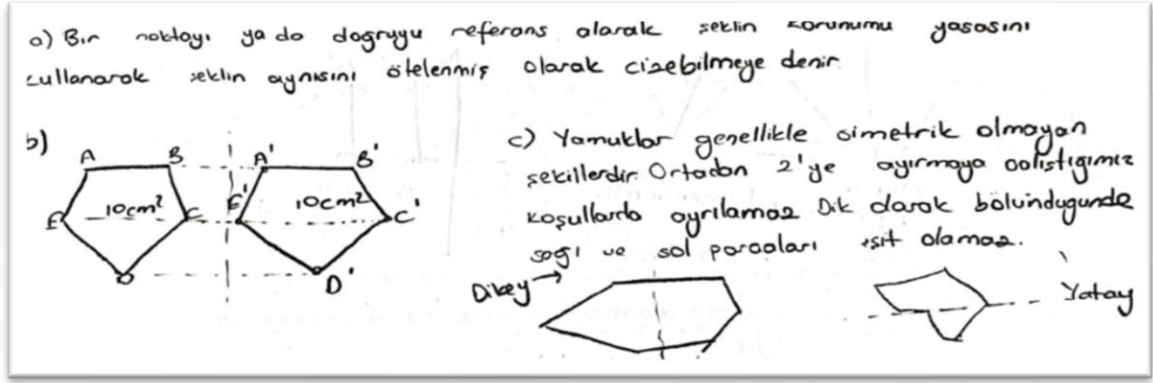 a) Bir noktayı ya da doğruyu referans alarak seklin korunumu yasasını
kullanarak seklin aynısını ötelenmiş olarak cizebilmeye denir.
b)
A B A' B'
E 10cm² C E' 10cm² C'
D D'
c) Yamuklar genellikle simetrik olmayan
sekillerdir. Ortadan 2'ye ayırmaya calıstıgımız
koşullarda ayrılamaz. Dik olarak bölündugunde
sagı ve sol parcaları esit olamaz.
Dikey →
Yatay